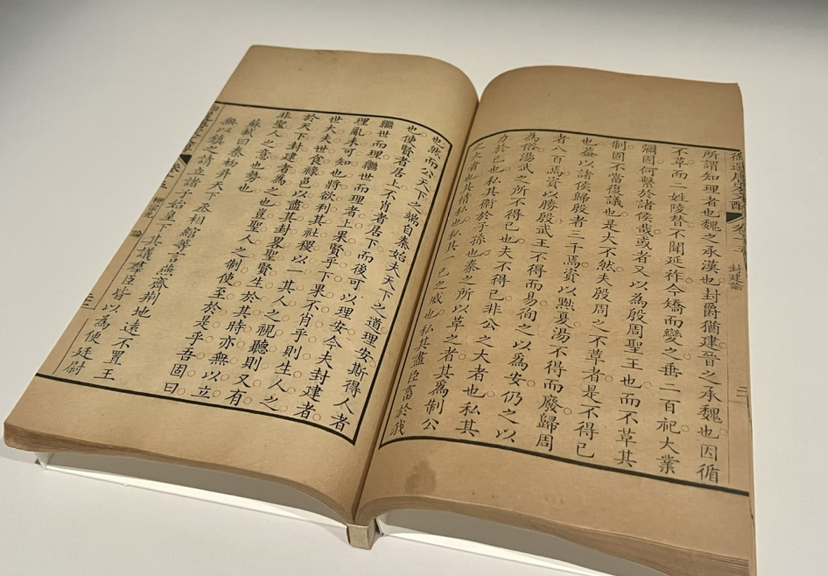 封建論
所謂知理者也魏之承漢也封爵猶建晉之承魏也因循
不革而二姓陵替不聞延祚今矯而變之垂二百祀大業
彌固何繫於諸侯哉或者又以為殷周聖王也而不革其
制固不當復議也是大不然夫殷周之不革者是不得已
也葢以諸侯歸殷者三千焉資以黜夏湯不得而廢歸周
者八百焉資以勝殷武王不得而易徇之以為安仍之以
為俗湯武之所不得已也夫不得已非公之大者也私其
力於己也私其衛於子孫也秦之所以革之者其為制公
之大者也其情私也私其一己之威也私其盡臣畜於我
也然而公天下之端自秦始夫天下之道理安斯得人者
也使賢者居上不肖者居下而後可以理安今夫封建者
繼世而理繼世而理者上果賢乎下果不肖乎則生人之
理亂未可知也將欲利其社稷以一其人之視聽則又有
世大夫世食祿邑以盡其封畧聖賢生於其時亦無以立
於天下封建者為之也豈聖人之制使至於是乎吾固曰
非聖人之意也勢也
蘇軾曰秦初并天下丞相綰等言燕齊荊地遠不置王
無以鎮之請立諸子始皇下其議羣臣皆以為便廷尉